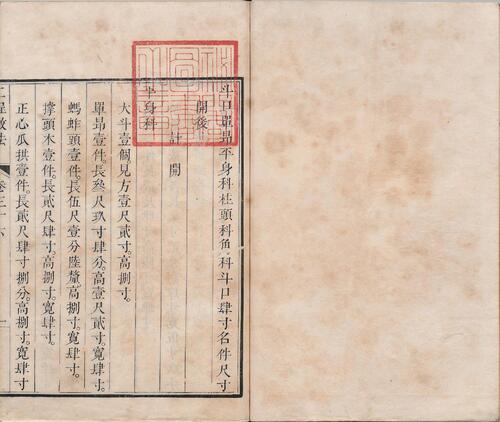 斗口單昂平身科柱頭科角科斗口肆寸各件尺寸
開後
計開
平身科
大斗壹個見方壹尺貳寸。高捌寸。
單昂壹件。長叁尺玖寸肆分。高壹尺貳寸。寬肆寸。
螞蚱頭壹件。長伍尺壹分陸釐。高捌寸。寬肆寸。
撑頭木壹件。長貳尺肆寸。高捌寸。寬肆寸。
正心瓜拱壹件。長貳尺肆寸捌分。高捌寸。寬肆寸
工程做法 卷三十六 一